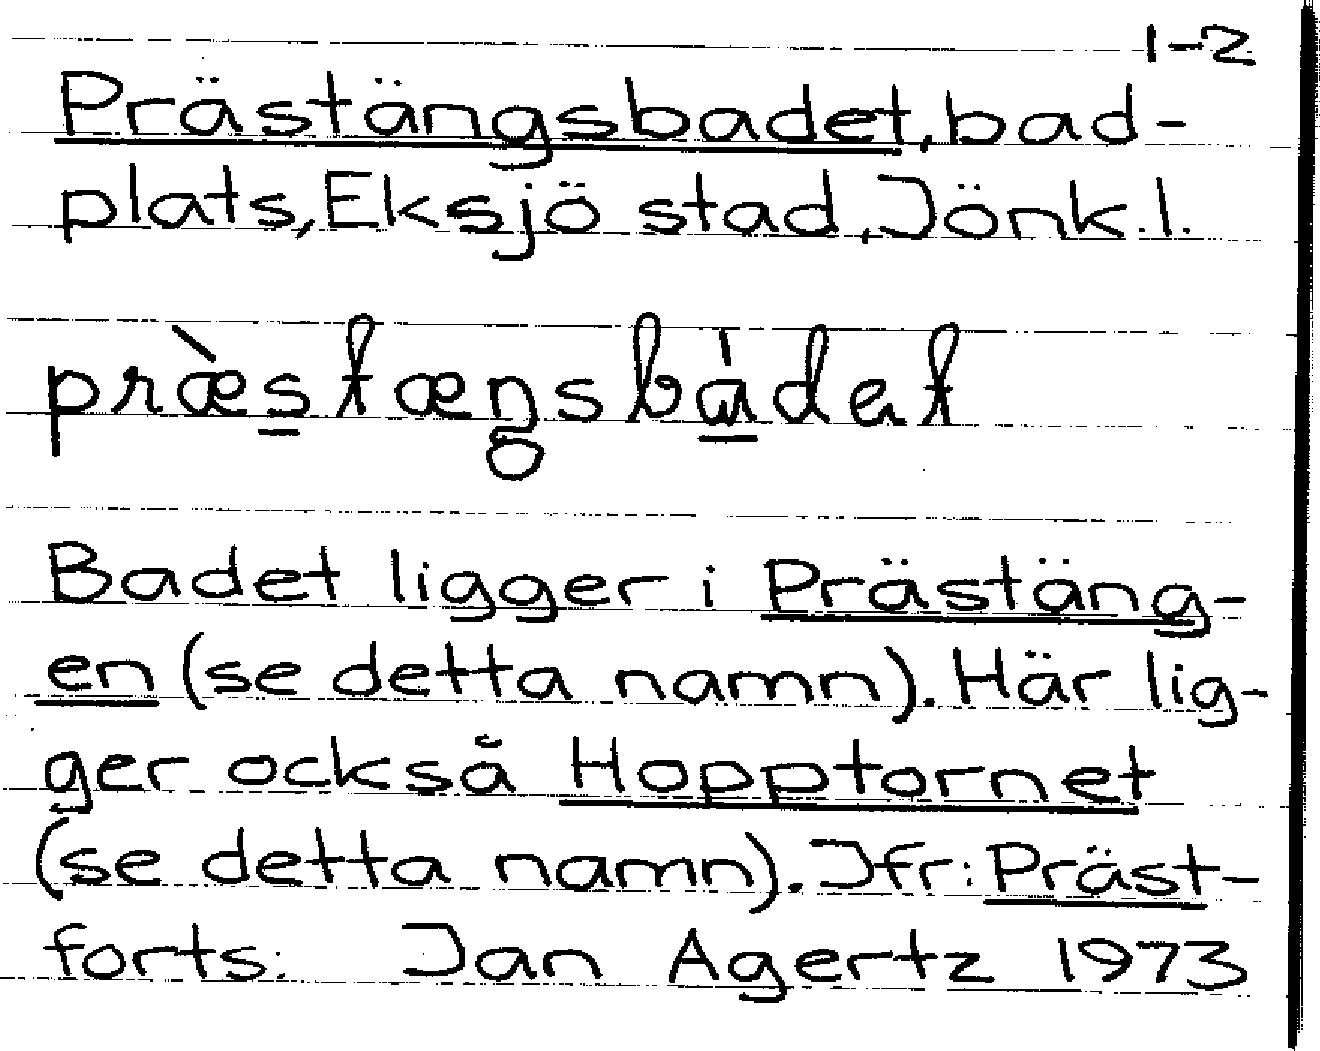 1-2
Prästängsbadet, bad-
plats, Eksjö stad, Jönk.l.
præ̀stæŋsbádet
Badet ligger i Prästäng-
en (se detta namn). Här lig-
ger också Hopptornet
(se detta namn). Jfr: Präst-
forts. Jan Agertz 1973